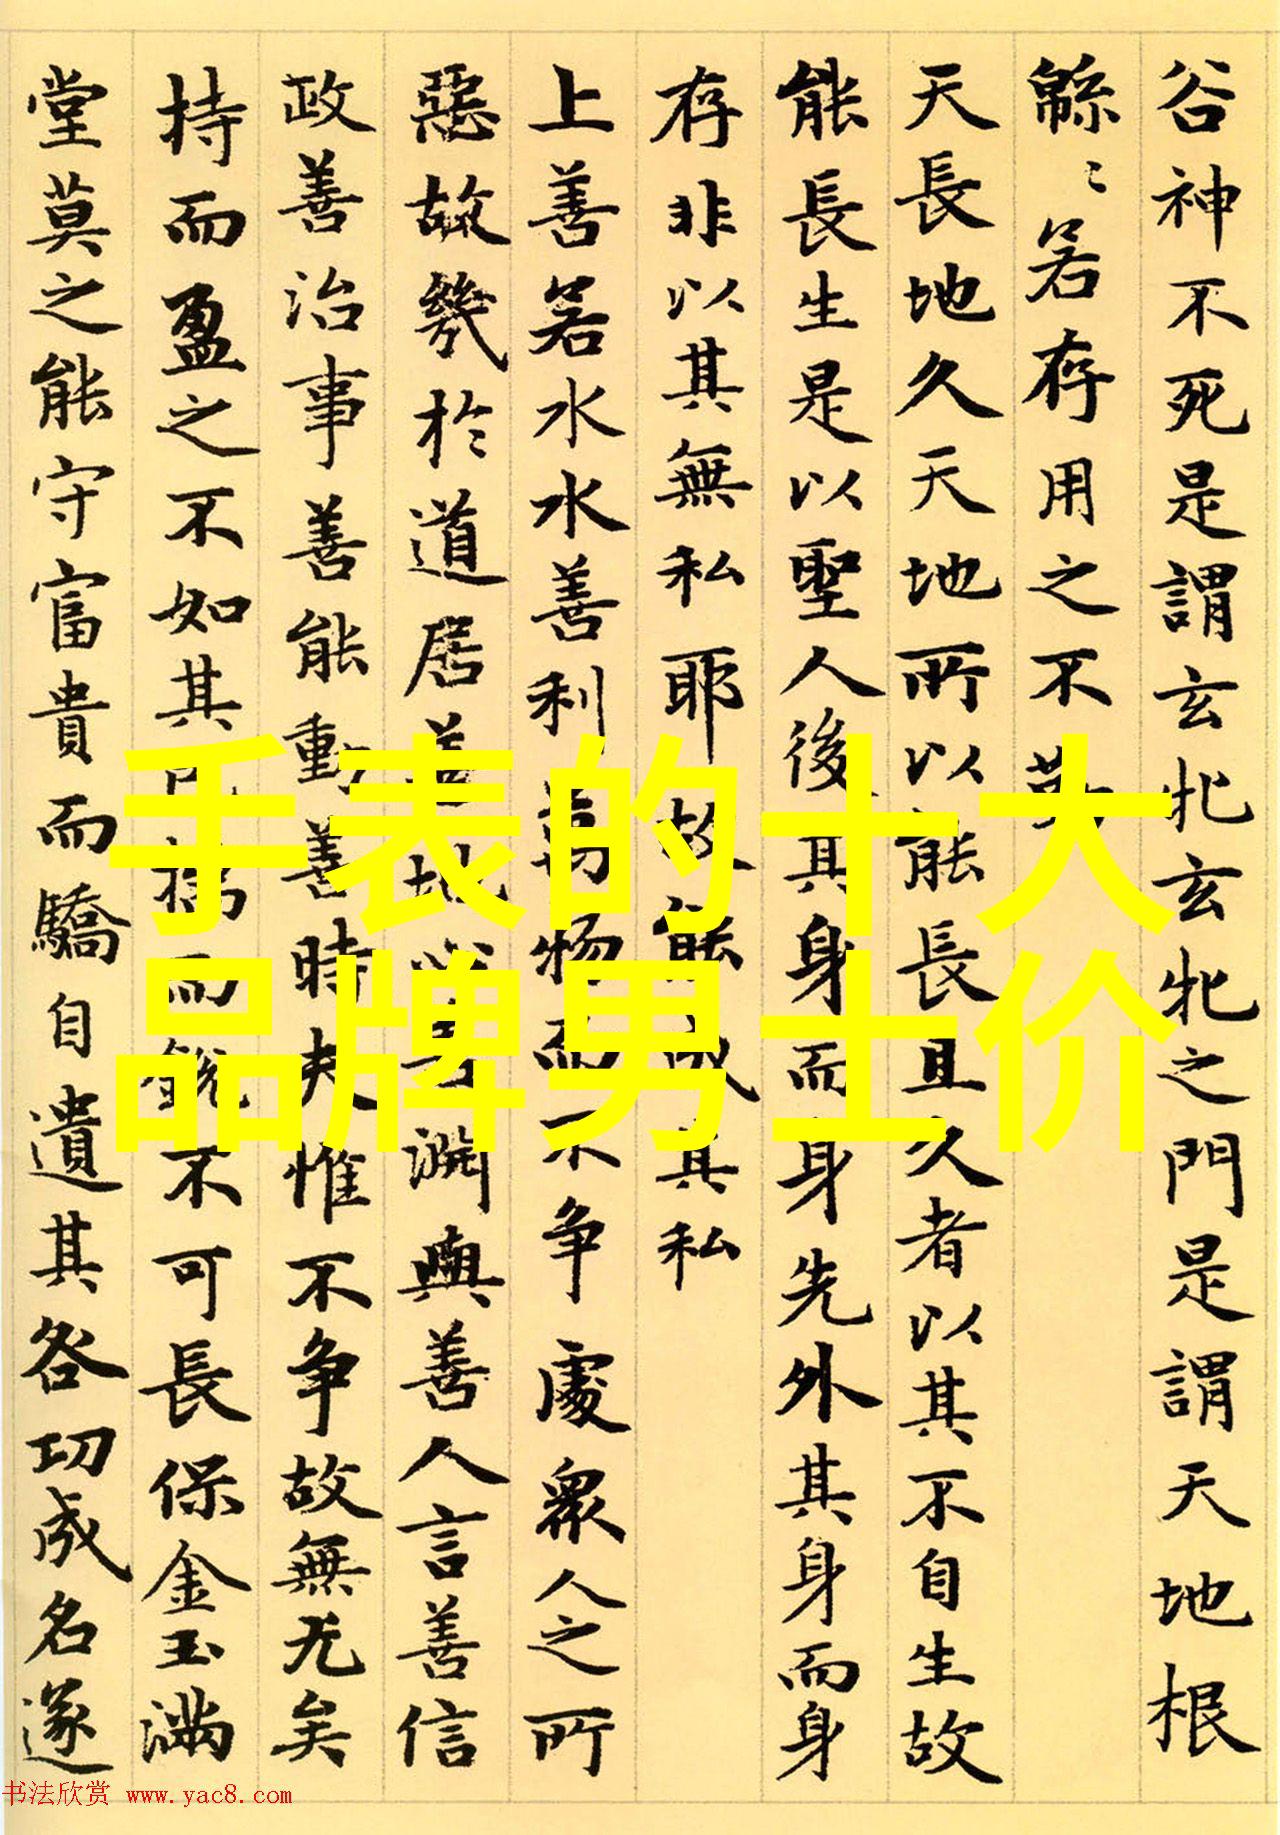 谷神不死是謂玄牝玄牝之門是謂天地根
緜〻若存用之不勤
天長地久天地所以能長且久者以其不自生故
能長生是以聖人後其身而身先外其身而身
存非以其無私耶故能成其私
上善若水水善利萬物而不争處衆人之所
惡故幾於道居善地心善渊與善人言善信
政善治事善能動善時夫惟不争故無尤矣
持而盈之不如其而銳不可長保金玉滿
堂莫之能守富貴而驕自遺其咎功成名遂
手表的十大
品牌男士价
书法欣赏 www.yac8.com